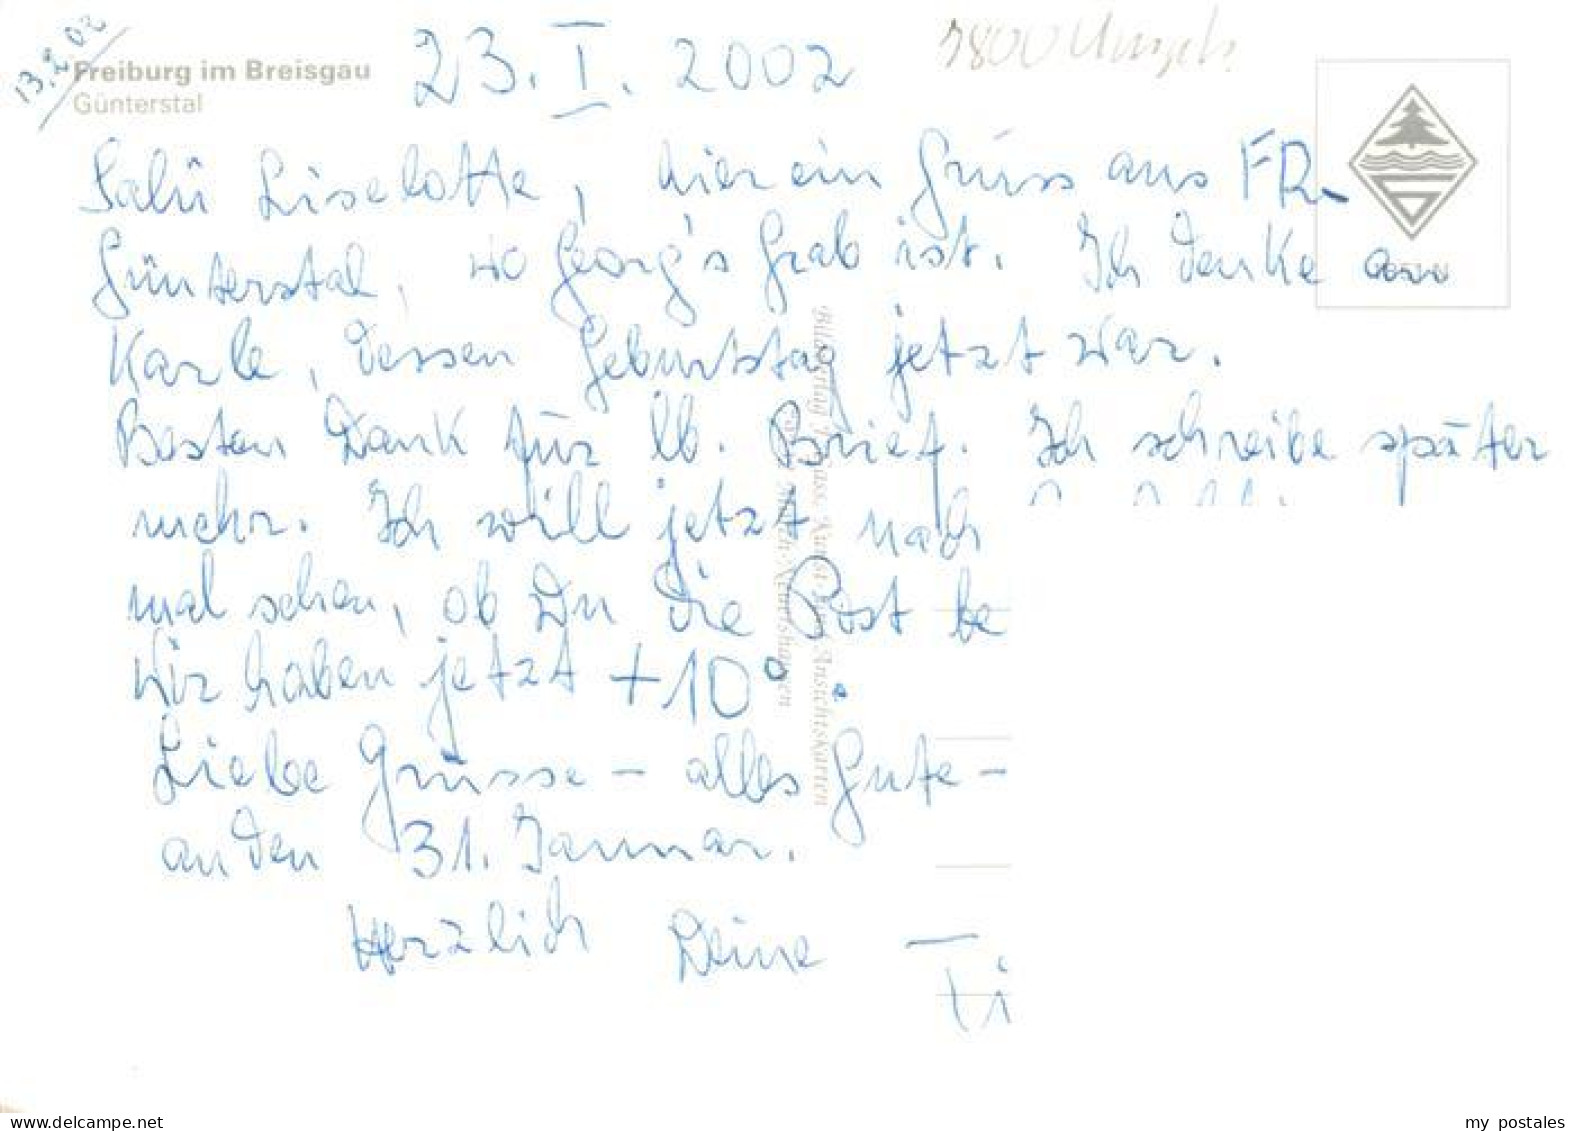 13.2.02
Freiburg im Breisgau
Günterstal
23. I. 2002
7800
Salü Liselotte, hier ein Gruss aus FR-
Günterstal, wo Georg's Grab ist. Ich denke
Karle, dessen Geburtstag jetzt war.
Besten Dank für lb. Brief. Ich schreibe später
mehr. Ich will jetzt nach
mal sehen, ob Du die Post be
Wir haben jetzt +10°.
Liebe Grüsse – alles Gute –
an den 31. Januar.
Herzlich Deine Ti
Ansichtskarten
my postales